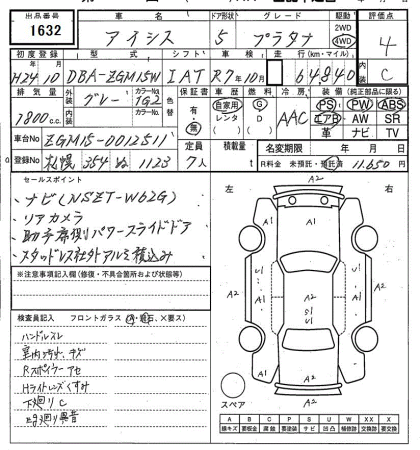 出品番号 車名 ドア形状 グレード 駆動 評価点
1632 アイシス 5 プラタナ 2WD 4WD 4
初度登録 型式 シフト 車検 走行(km・マイル) 内装
H24年10月 DBA-ZGM15W IAT R7年10月 64840 C
排気量 外装 グレー カラーNo. 1G2 色替 保証書 車歴 燃料 冷房 装備(純正部品に限る)
1800c.c. 内装 カラーNo. 有 無 自家用 レンタ G D AAC PS PW ABS
エアB AW SR
革 ナビ TV
車台No ZGM15-0012511 定員 積載量 名変期限 年 月 日
登録No 札幌 354 ゆ 1123 7人 t R料金 未預託・預託済 11.650円
セールスポイント
・ナビ(NSZT-W62G)
・リアカメラ
・助手席側パワースライドドア
・スタッドレス社外アルミ積込み
※注意事項記入欄(修復・不具合箇所および状態等)
検査員記入 フロントガラス(A・飛石、×要ス)
ハンドルスレ
室内汚れ、キズ
Rスポイラーアセ
Hライトレンズくすみ
下廻りC
左 右
A2
A1 A1
A2 U1 A1 A2 U1 A1 A2
S1
U1
A1
A2
スペア
A B C P S U W X XX
線キズ 要板金 腐蝕 要塗装 サビ 凹凸 補修跡 交換跡 要交換